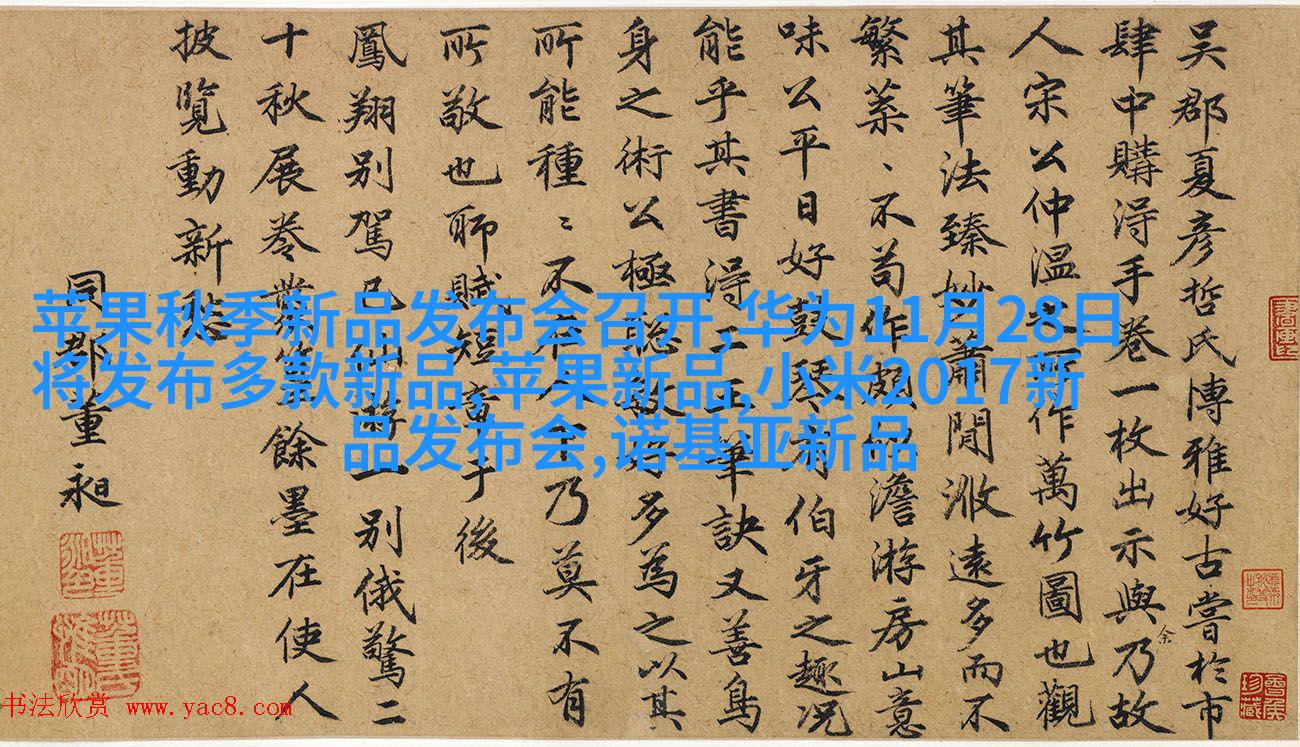 吴郡夏彦哲氏博雅好古嘗於市
肆中購淂手卷一枚出示與乃故
人宋公仲温 作萬竹圖也觀
其筆法臻妙蕭閒 遠多而不
繁 不苟作 澹游房山意
味公平日好鼓琴 伯牙之趣况
能乎其書淂二王筆訣又善烏
身之術公極 多為之以其
所能種〻不 乃莫不有
所敬也聊賦短章于後
鳳翔别駕 一别俄驚二
十秋展卷 餘墨在使人
披覽動新愁
同郡董昶
余
苹果秋季新品发布会召开,华为11月28日
将发布多款新品,苹果新品,小米2017新
品发布会,诺基亚新品
书法欣赏 www.yac8.com